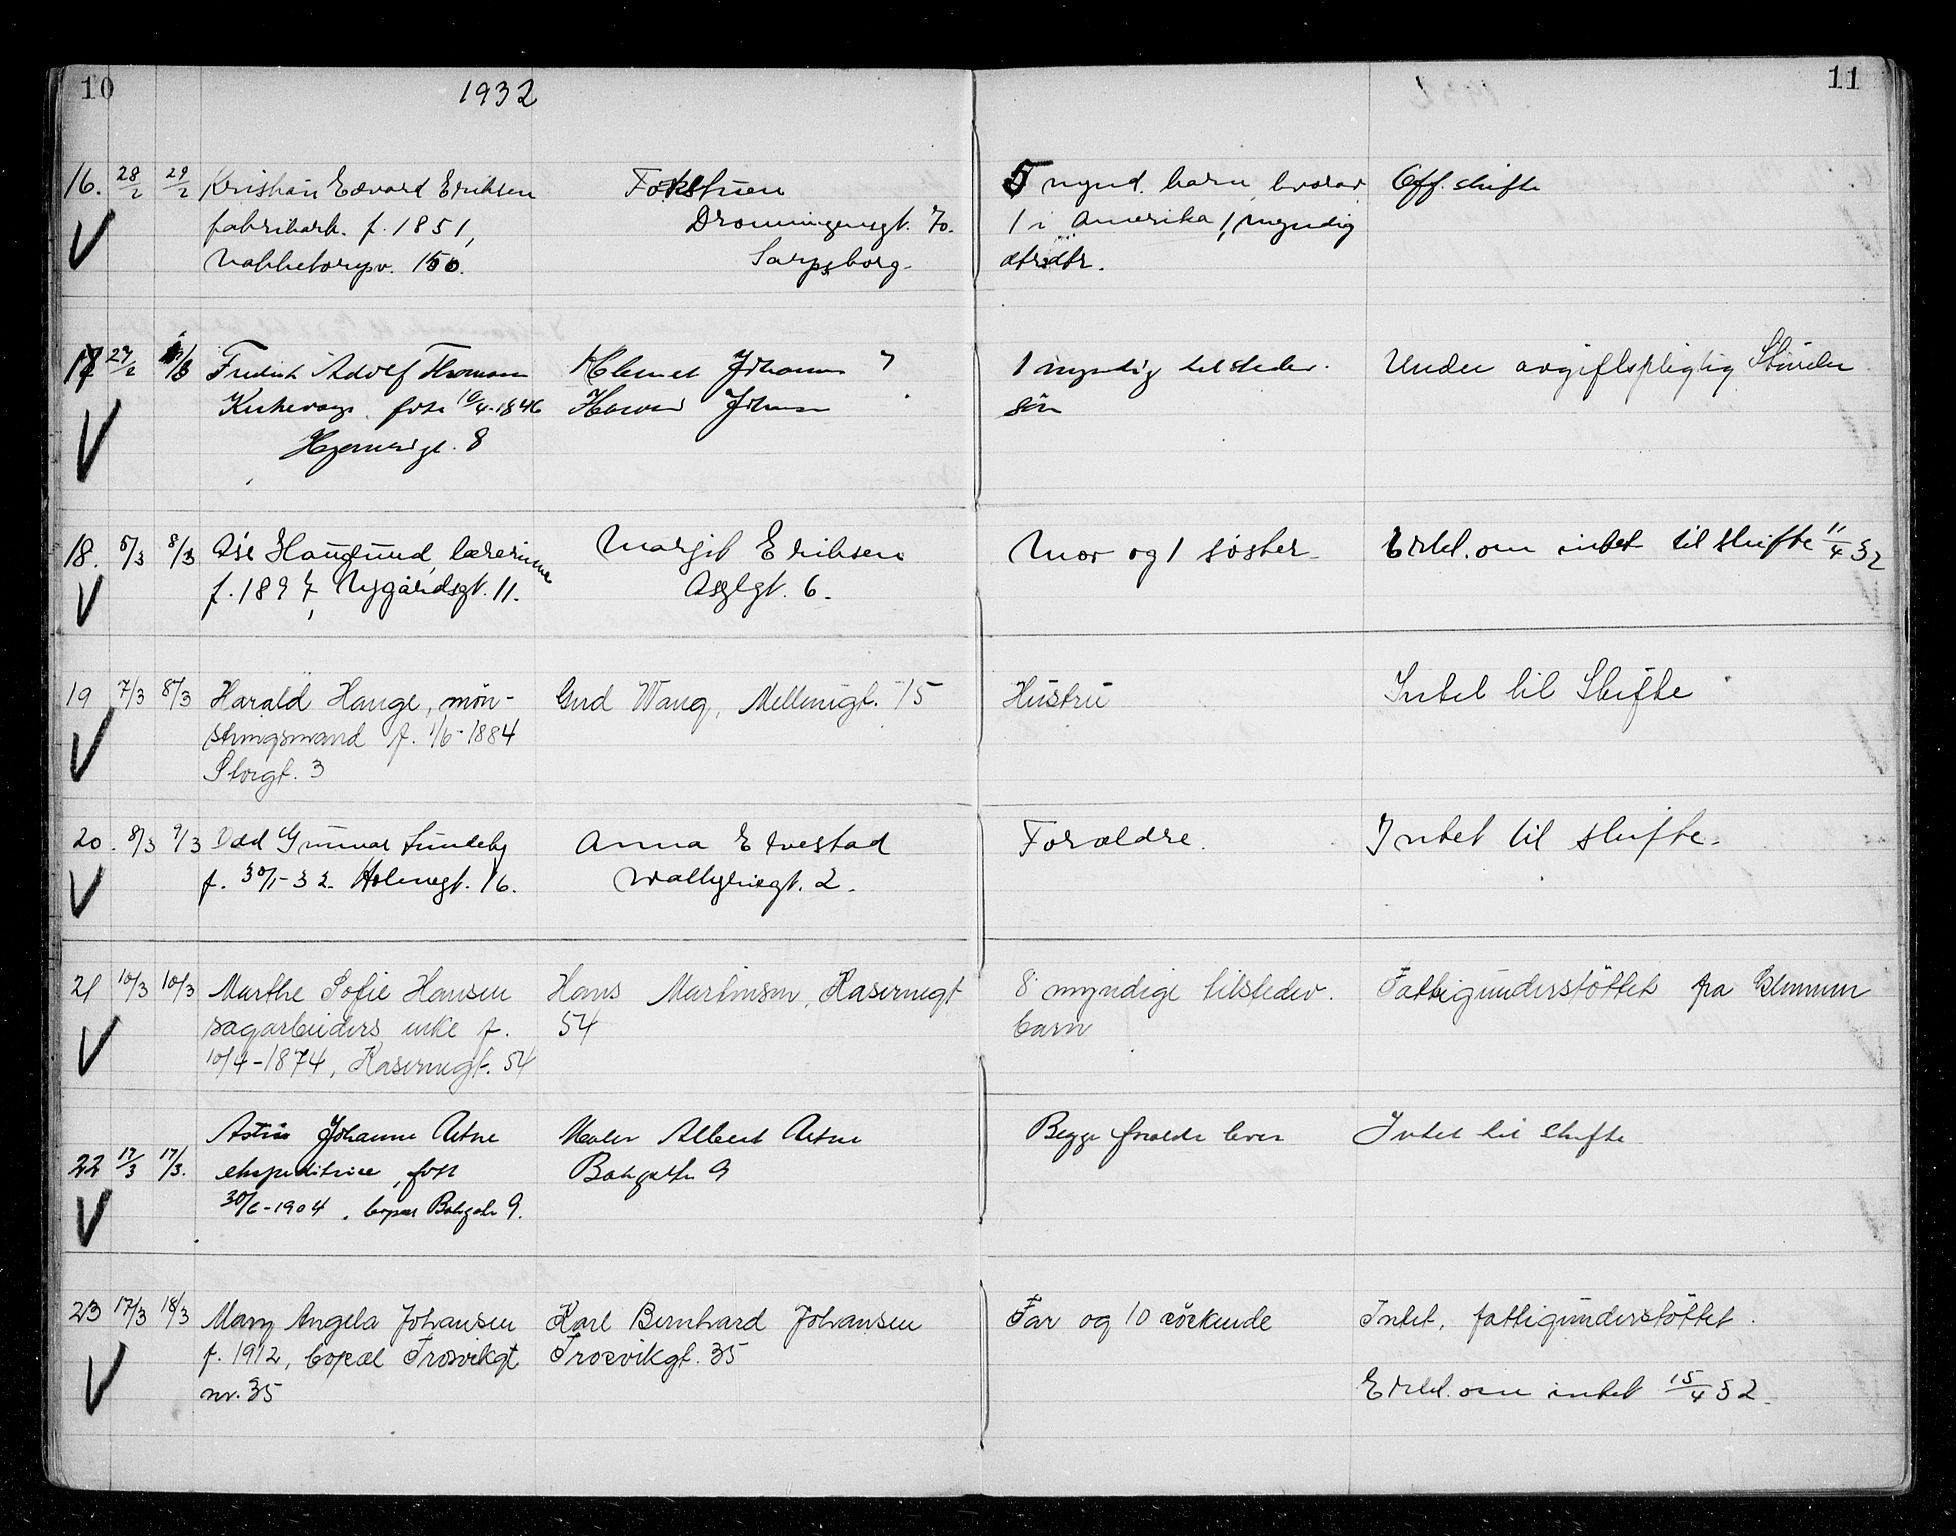 10
1932
11
16. 28/2 29/2 Kristian Edvard Eriksen
fabrikarb. f. 1851,
Nabbetorpv. 150.
Dronningensgt. 70.
Sarpsborg.
5 mynd. barn, hvorav
1 i Amerika, 1 myndig
dtrdtr.
Off. skifte
17 27/2 Adolf
født 10/4-1846
8
1 myndig tilstedev.
søn
Under avgiftspligtig
18. 5/3 8/3 Åse Hauglund, lærerinne
f. 1897, Nygårdsgt. 11.
Margit Eriksen
6.
Mor og 1 søster
Erkl. om intet til skifte 11/4 32
19 7/3 8/3 Harald Hauge, mön-
stringsmand f. 1/6-1884
Storgt. 3
Gud Wang, 15
Hustru
Intet til Skifte
20. 8/3 9/3 Odd Gunnar Sundeby
f. 30/1-32. Holmegt. 16.
Anna Elvestad
Walkyriegt. 2.
Forældre.
Intet til skifte.
21 10/3 10/3 Marthe Sofie Hansen
sagarbeiders enke f.
10/4-1874, Kasernegt. 54
Hans Martinsen, Kasernegt
54
8 myndige tilstedev.
barn
Fattigunderstöttet fra Glemmen
22 17/3 17/3. Johanne
ekspeditrice, født
30/6-1904, bopæl 9.
Maler Albert
9
Begge forældre lever
Intet til skifte
23 17/3 18/3 Mary Angela Johansen
f. 1912, bopæl Trosvikgt
nr. 35
Karl Bernhard Johansen
Trosvikgt. 35
Far og 10 söskende
Intet, fattigunderstöttet.
Erkl. om intet 15/4 32.